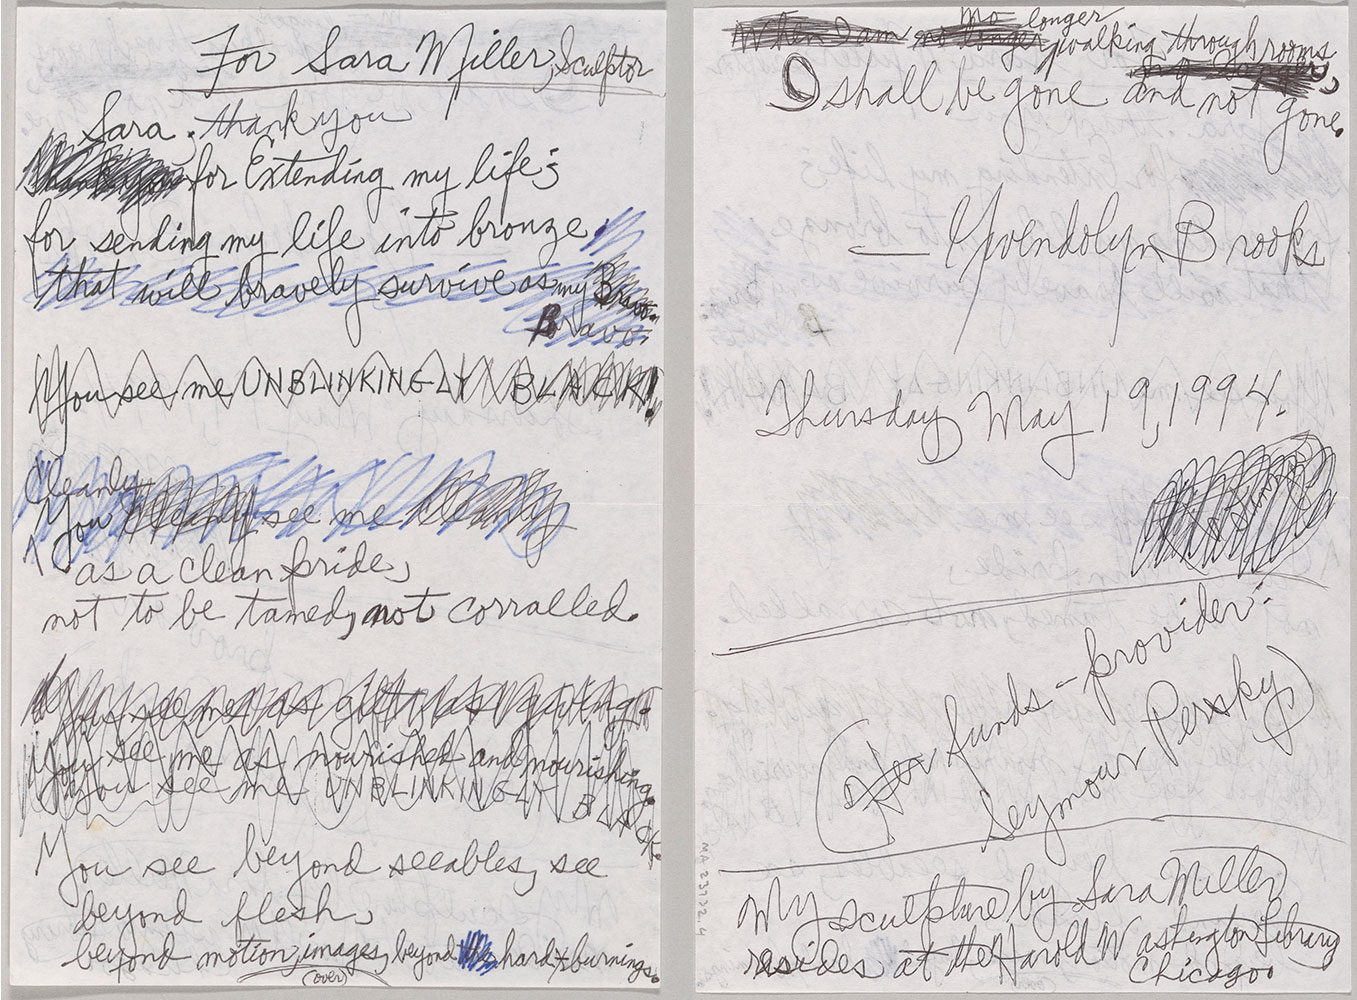 For Sara Miller, Sculptor
Sara, thank you
Thank you for Extending my life;
for sending my life into bronze
that will bravely survive as my Bravo.
Bravo.
You see me UNBLINKINGLY BLACK!
Cleanly
You cleanly see me
as a clean pride,
not to be tamed, not corralled.
You see me as gifted, as
You see me as nourished and nourishing.
You see me UNBLINKINGLY BLACK.
You see beyond seeables, see
beyond flesh,
beyond motion, images, beyond the hard burnings.
(over)
no longer
When I am no longer walking through rooms
I shall be gone and not gone.
— Gwendolyn Brooks
Thursday May 19, 1994.
(Her funds-provider:
Seymour Persky)
My sculpture by Sara Miller
resides at the Harold Washington Library
Chicago.
MA 23732.4